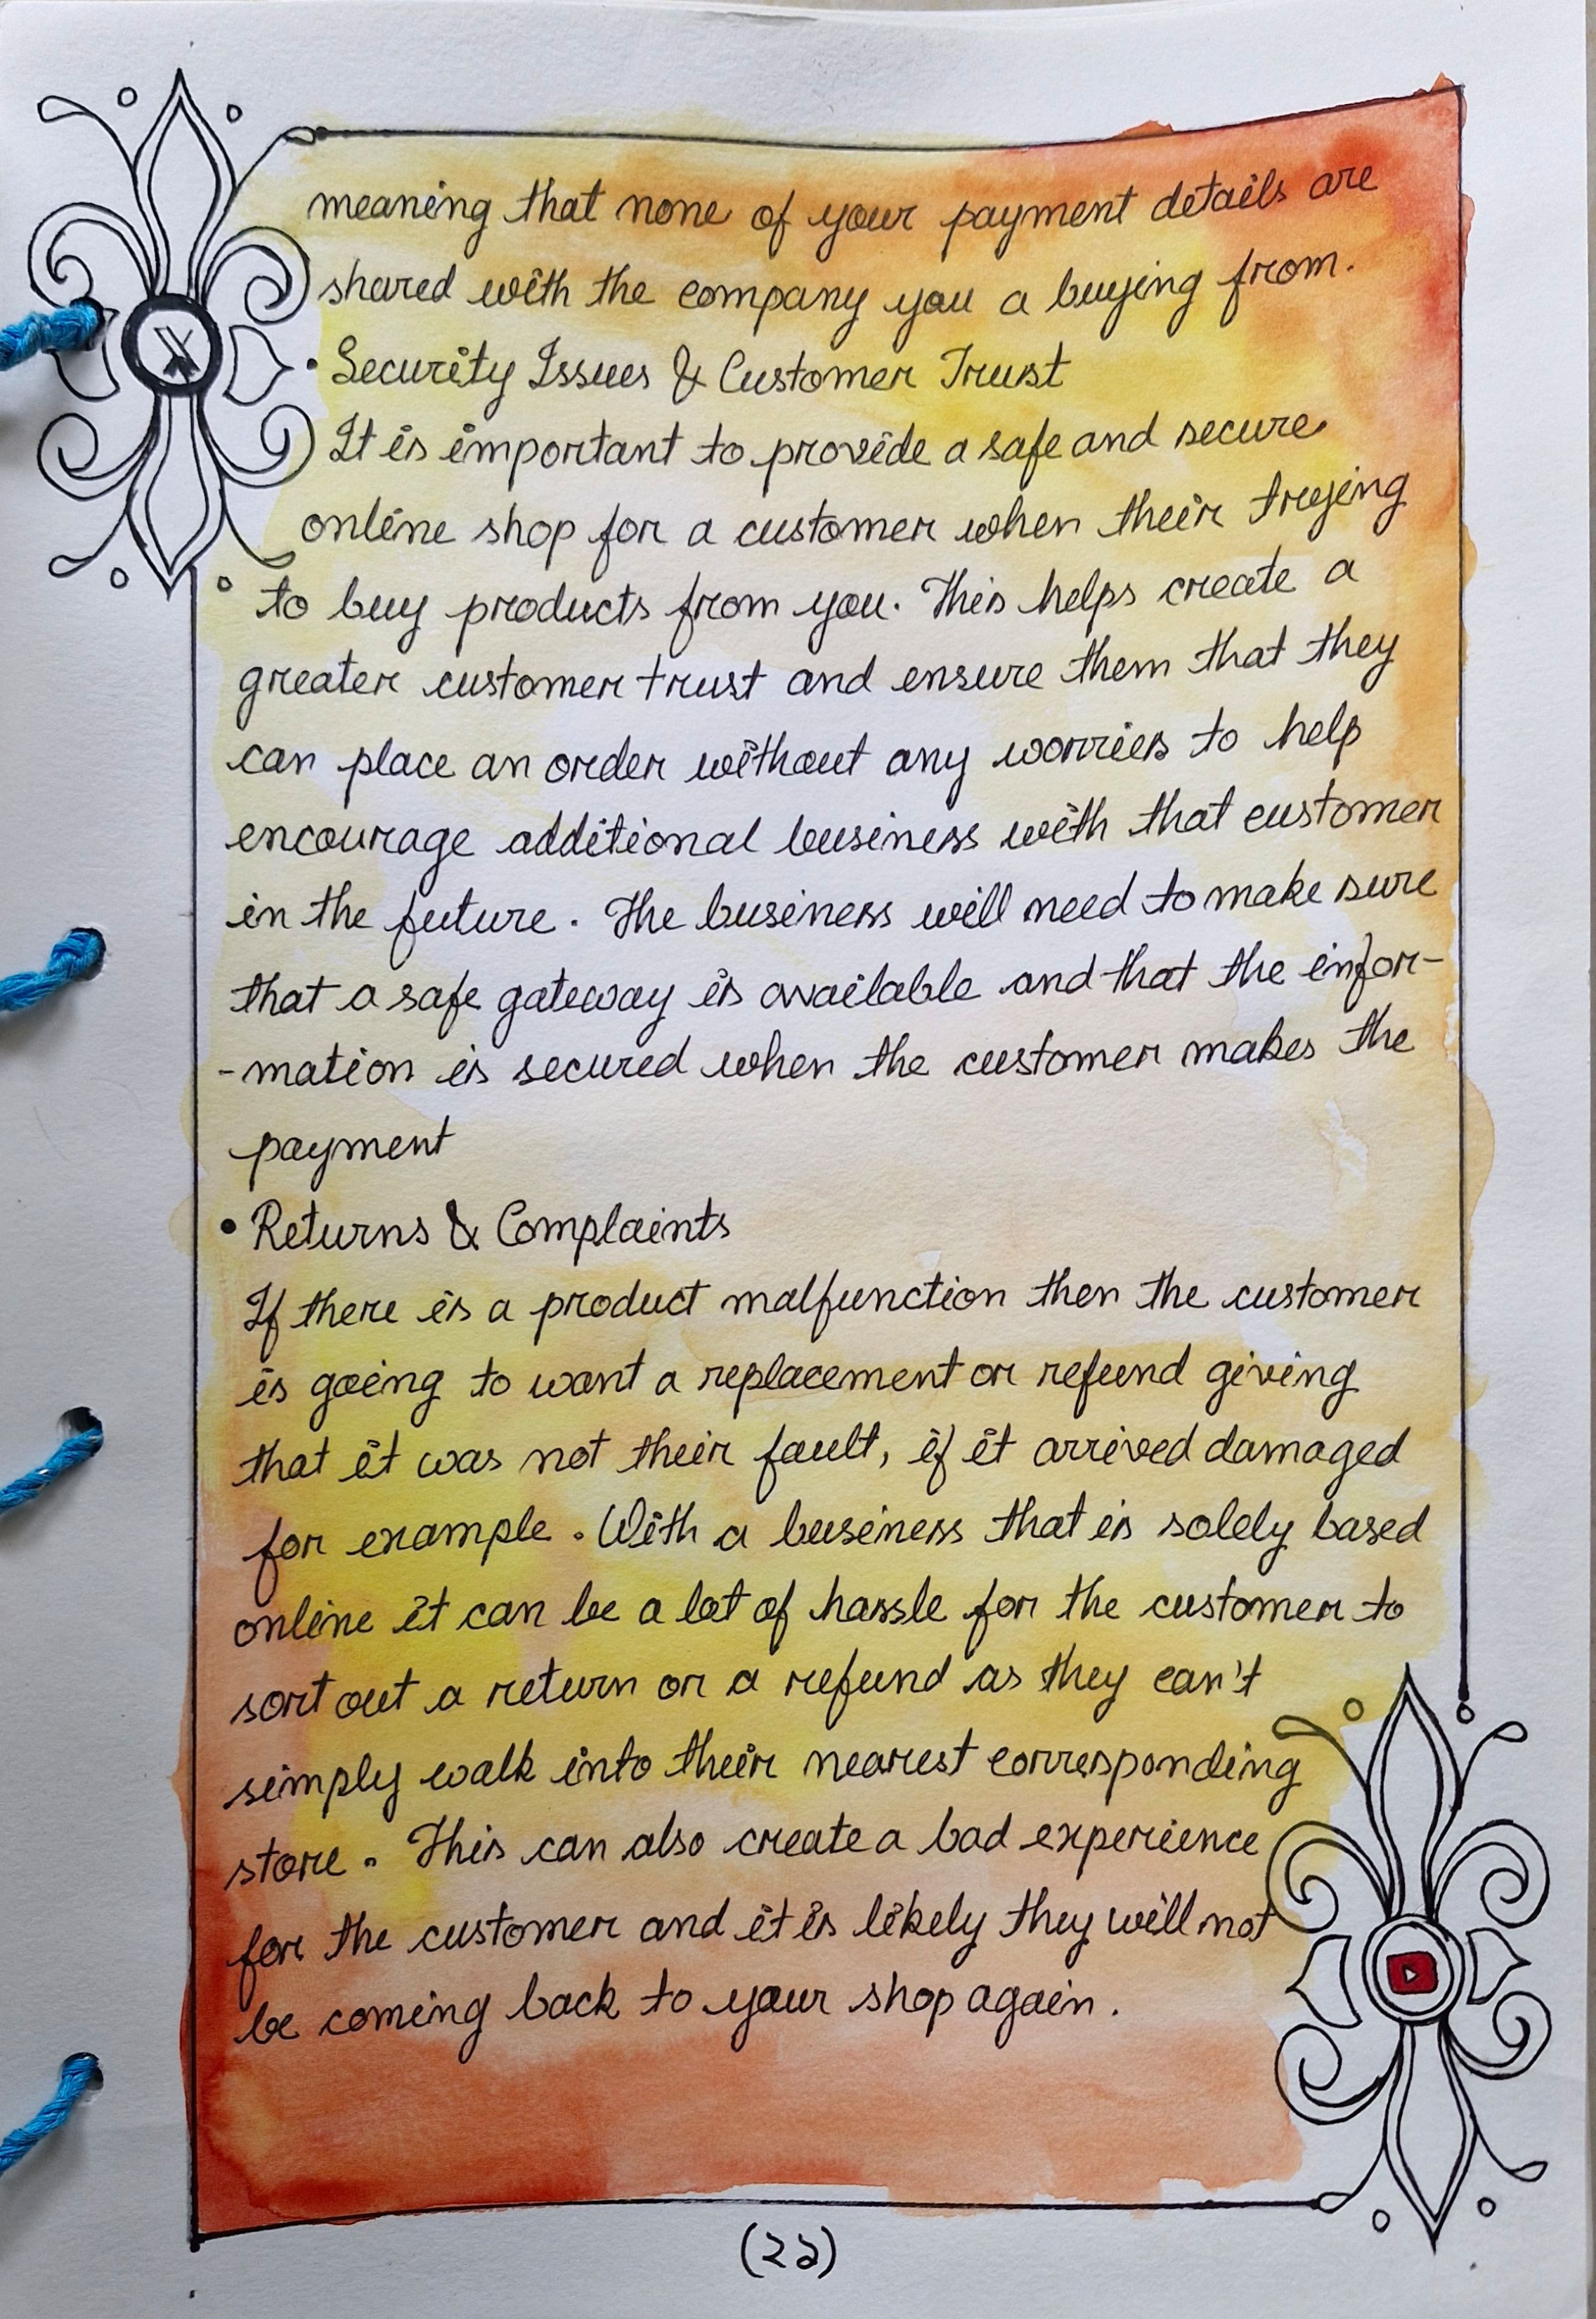 meaning that none of your payment details are
shared with the company you a buying from.
• Security Issues & Customer Trust
It is important to provide a safe and secure
online shop for a customer when their trying
to buy products from you. This helps create a
greater customer trust and ensure them that they
can place an order without any worries to help
encourage additional business with that customer
in the future. The business will need to make sure
that a safe gateway is available and that the infor-
-mation is secured when the customer makes the
payment
• Returns & Complaints
If there is a product malfunction then the customer
is going to want a replacement or refund giving
that it was not their fault, if it arrived damaged
for example. With a business that is solely based
online it can be a lot of hassle for the customer to
sort out a return or a refund as they can't
simply walk into their nearest corresponding
store. This can also create a bad experience
for the customer and it is likely they will not
be coming back to your shop again.
(২১)